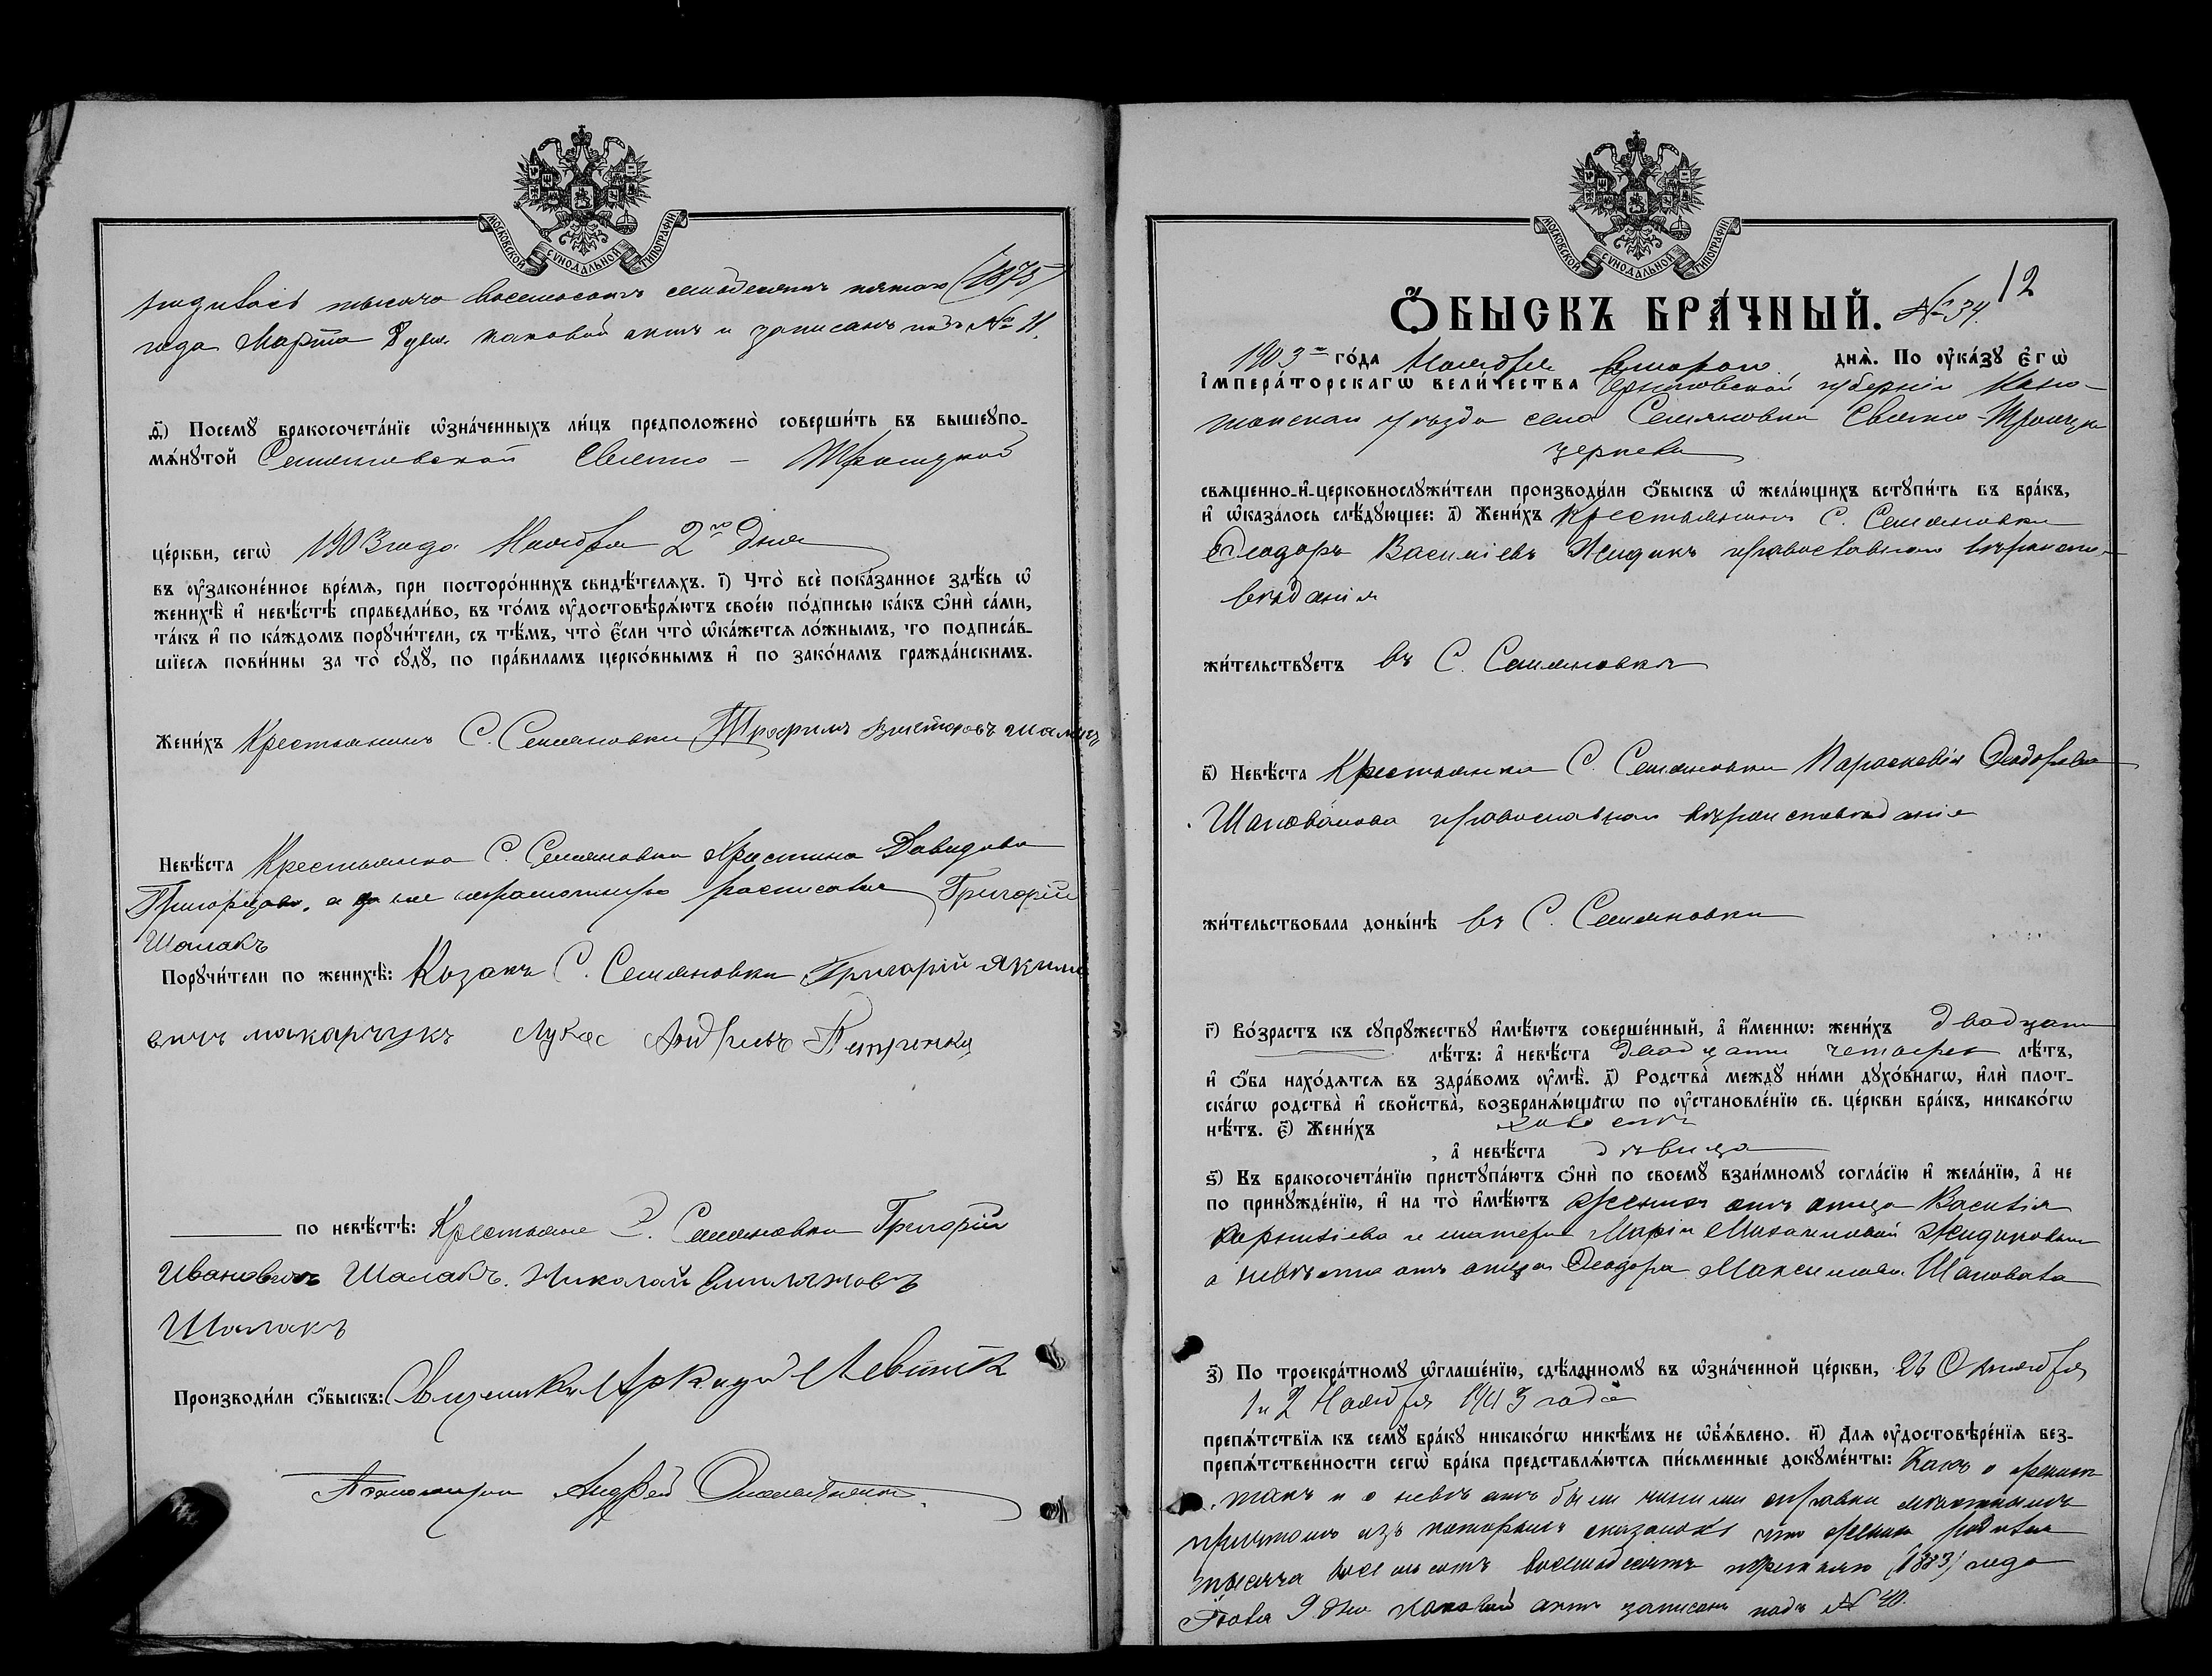 МОСКОВСКОЙ СѴНОДАЛЬНОЙ ТИПОГРАФІИ
родилась тысяча восемьсотъ семьдесятъ пятаго (1875)
года Марта 8 дня каковой актъ и записанъ подъ № 11.
д҃) Посемꙋ бракосочета́нїе ѡ҆зна́ченныхъ ли́цъ предположено̀ соверши́ть въ вышеꙋпо-
мѧ́нꙋтой Семяновской Свято - Троицкой
це́ркви, сегѡ̀ 1903 года Ноября 2го дня
въ ᲂу҆зако́ненное вре́мѧ, при посторо́ннихъ свидѣ́телѧхъ. і҃) Что̀ всѐ пока́занное здѣ́сь ѡ҆
женихѣ̀ и҆ невѣ́стѣ справедли́во, въ то́мъ ᲂу҆достовѣрѧ́ютъ свое́ю по́дписью ка́къ ѻ҆нѝ са́ми,
та́къ и҆ по ка́ждомъ порꙋчи́тели, съ тѣ́мъ, что̀ є҆́сли что̀ ѡ҆ка́жетсѧ ло́жнымъ, то подписа́в-
шїесѧ пови́нны за то̀ сꙋдꙋ̀, по пра́виламъ церко́внымъ и҆ по зако́намъ гражда́нскимъ.
Жени́хъ Крестьянинъ С. Семяновки Трофимъ Викторовъ
Невѣ́ста Крестьянка С. Семяновки Христина Давидова
а за нее неграмотную росписался Григорій
Шалакъ
Порꙋчи́тели по женихѣ̀: Козакъ С. Семяновки Григорій Якимо
вичъ макарчукъ Лукас Андріевъ Петренко
по невѣ́стѣ: Крестьяне С. Семяновки Григорій
Ивановичъ Шалакъ. Николай Емиляновъ
Шалакъ
Производи́ли ѻ҆́быскъ: Священникъ Аркадій Левицкій
Псаломщик Андрей
МОСКОВСКОЙ СѴНОДАЛЬНОЙ ТИПОГРАФІИ
12
Ѻ҆́БЫСКЪ БРА́ЧНЫЙ. № 34.
1903го го́да Ноября второго днѧ̀. По ᲂу҆ка́зꙋ є҆гѡ̀
і҆мпера́торскагѡ вели́чества Черниговской губерніи Коно-
топскаго уѣзда села Семяновки Свято-Троицкой
церкви
свѧщенно-и҆-церковнослꙋжи́тели производи́ли ѻ҆́быскъ ѡ҆ жела́ющихъ встꙋпи́ть въ бра́къ,
и҆ ѡ҆каза́лось слѣ́дꙋющее: а҃) Жени́хъ Крестьянинъ С. Семяновки
Ѳеодоръ Василіевъ Жидикъ православнаго вѣроиспо-
вѣданія
жи́тельствꙋетъ въ С. Семяновкѣ
в҃) Невѣ́ста Крестьянка С. Семяновки Параскевія Ѳеодорова
Шаповалова православнаго вѣроисповѣданія
жи́тельствовала доны́нѣ въ С. Семяновки
г҃) Во́зрастъ къ сꙋпрꙋ́жествꙋ и҆мѣ́ютъ соверше́нный, а҆ и҆́менно: жени́хъ двадцати
лѣ́тъ: а҆ невѣ́ста двадцати четырех лѣ́тъ,
и҆ ѻ҆́ба нахо́дѧтсѧ въ здра́вомъ ᲂу҆мѣ̀. д҃) Родства̀ междꙋ̀ ни́ми дꙋхо́внагѡ, и҆лѝ плот-
ска́гѡ родства̀ и҆ свойства̀, возбранѧ́ющагѡ по ᲂу҆становле́нїю св. це́ркви бра́къ, никако́гѡ
нѣ́тъ. є҃) Жени́хъ холостъ
, а҆ невѣ́ста дѣвица
ѕ҃) Къ бракосочета́нїю пристꙋпа́ютъ ѻ҆нѝ по своемꙋ̀ взаи́мномꙋ согла́сїю и҆ жела́нїю, а҆ не
по принꙋжде́нїю, и҆ на то̀ и҆мѣ́ютъ женихъ отъ отца Василія
Корниліева и матери Маріи Михаиловой Жидиковыхъ
а невѣста отъ отца Ѳеодора Максимова Шаповала
з҃) По троекра́тномꙋ ѡ҆глаше́нїю, сдѣ́ланномꙋ въ ѡ҆зна́ченной це́ркви, 26 Октября
1 и 2 Ноября 1903 года
препѧ́тствїѧ къ семꙋ̀ бра́кꙋ никако́гѡ никѣ́мъ не ѡ҆б̾ѧ́влено. и҃) Длѧ ᲂу҆достовѣре́нїѧ без-
препѧ́тственности сегѡ̀ бра́ка представлѧ́ютсѧ пи́сьменные докꙋме́нты: Какъ о женихѣ
такъ и о невѣстѣ были чинимы справки мѣстнымъ
причтомъ изъ которыхъ оказалось что женихъ родился
тысяча восемьсотъ восемьдесятъ третьяго (1883) года
9 дня каковой актъ записанъ подъ № 40.